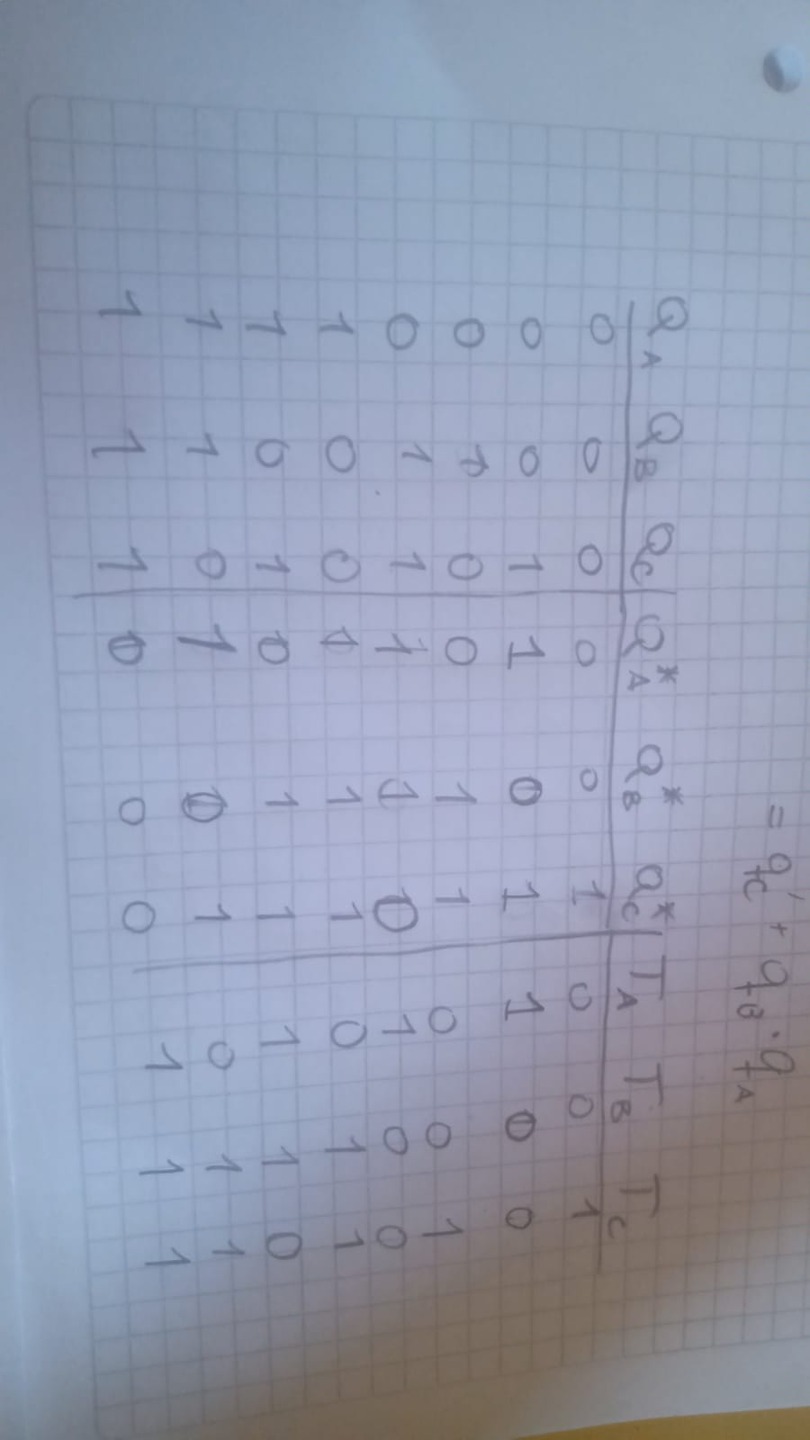 = qC' + qB · qA
QA QB QC QA* QB* QC* TA TB TC
0 0 0 0 0 1 0 0 1
0 0 1 1 0 1 1 0 0
0 1 0 0 1 1 0 0 1
0 1 1 1 1 0 1 0 0
1 0 0 1 1 1 0 1 1
1 0 1 0 1 1 1 1 0
1 1 0 1 0 1 0 1 1
1 1 1 0 0 0 1 1 1